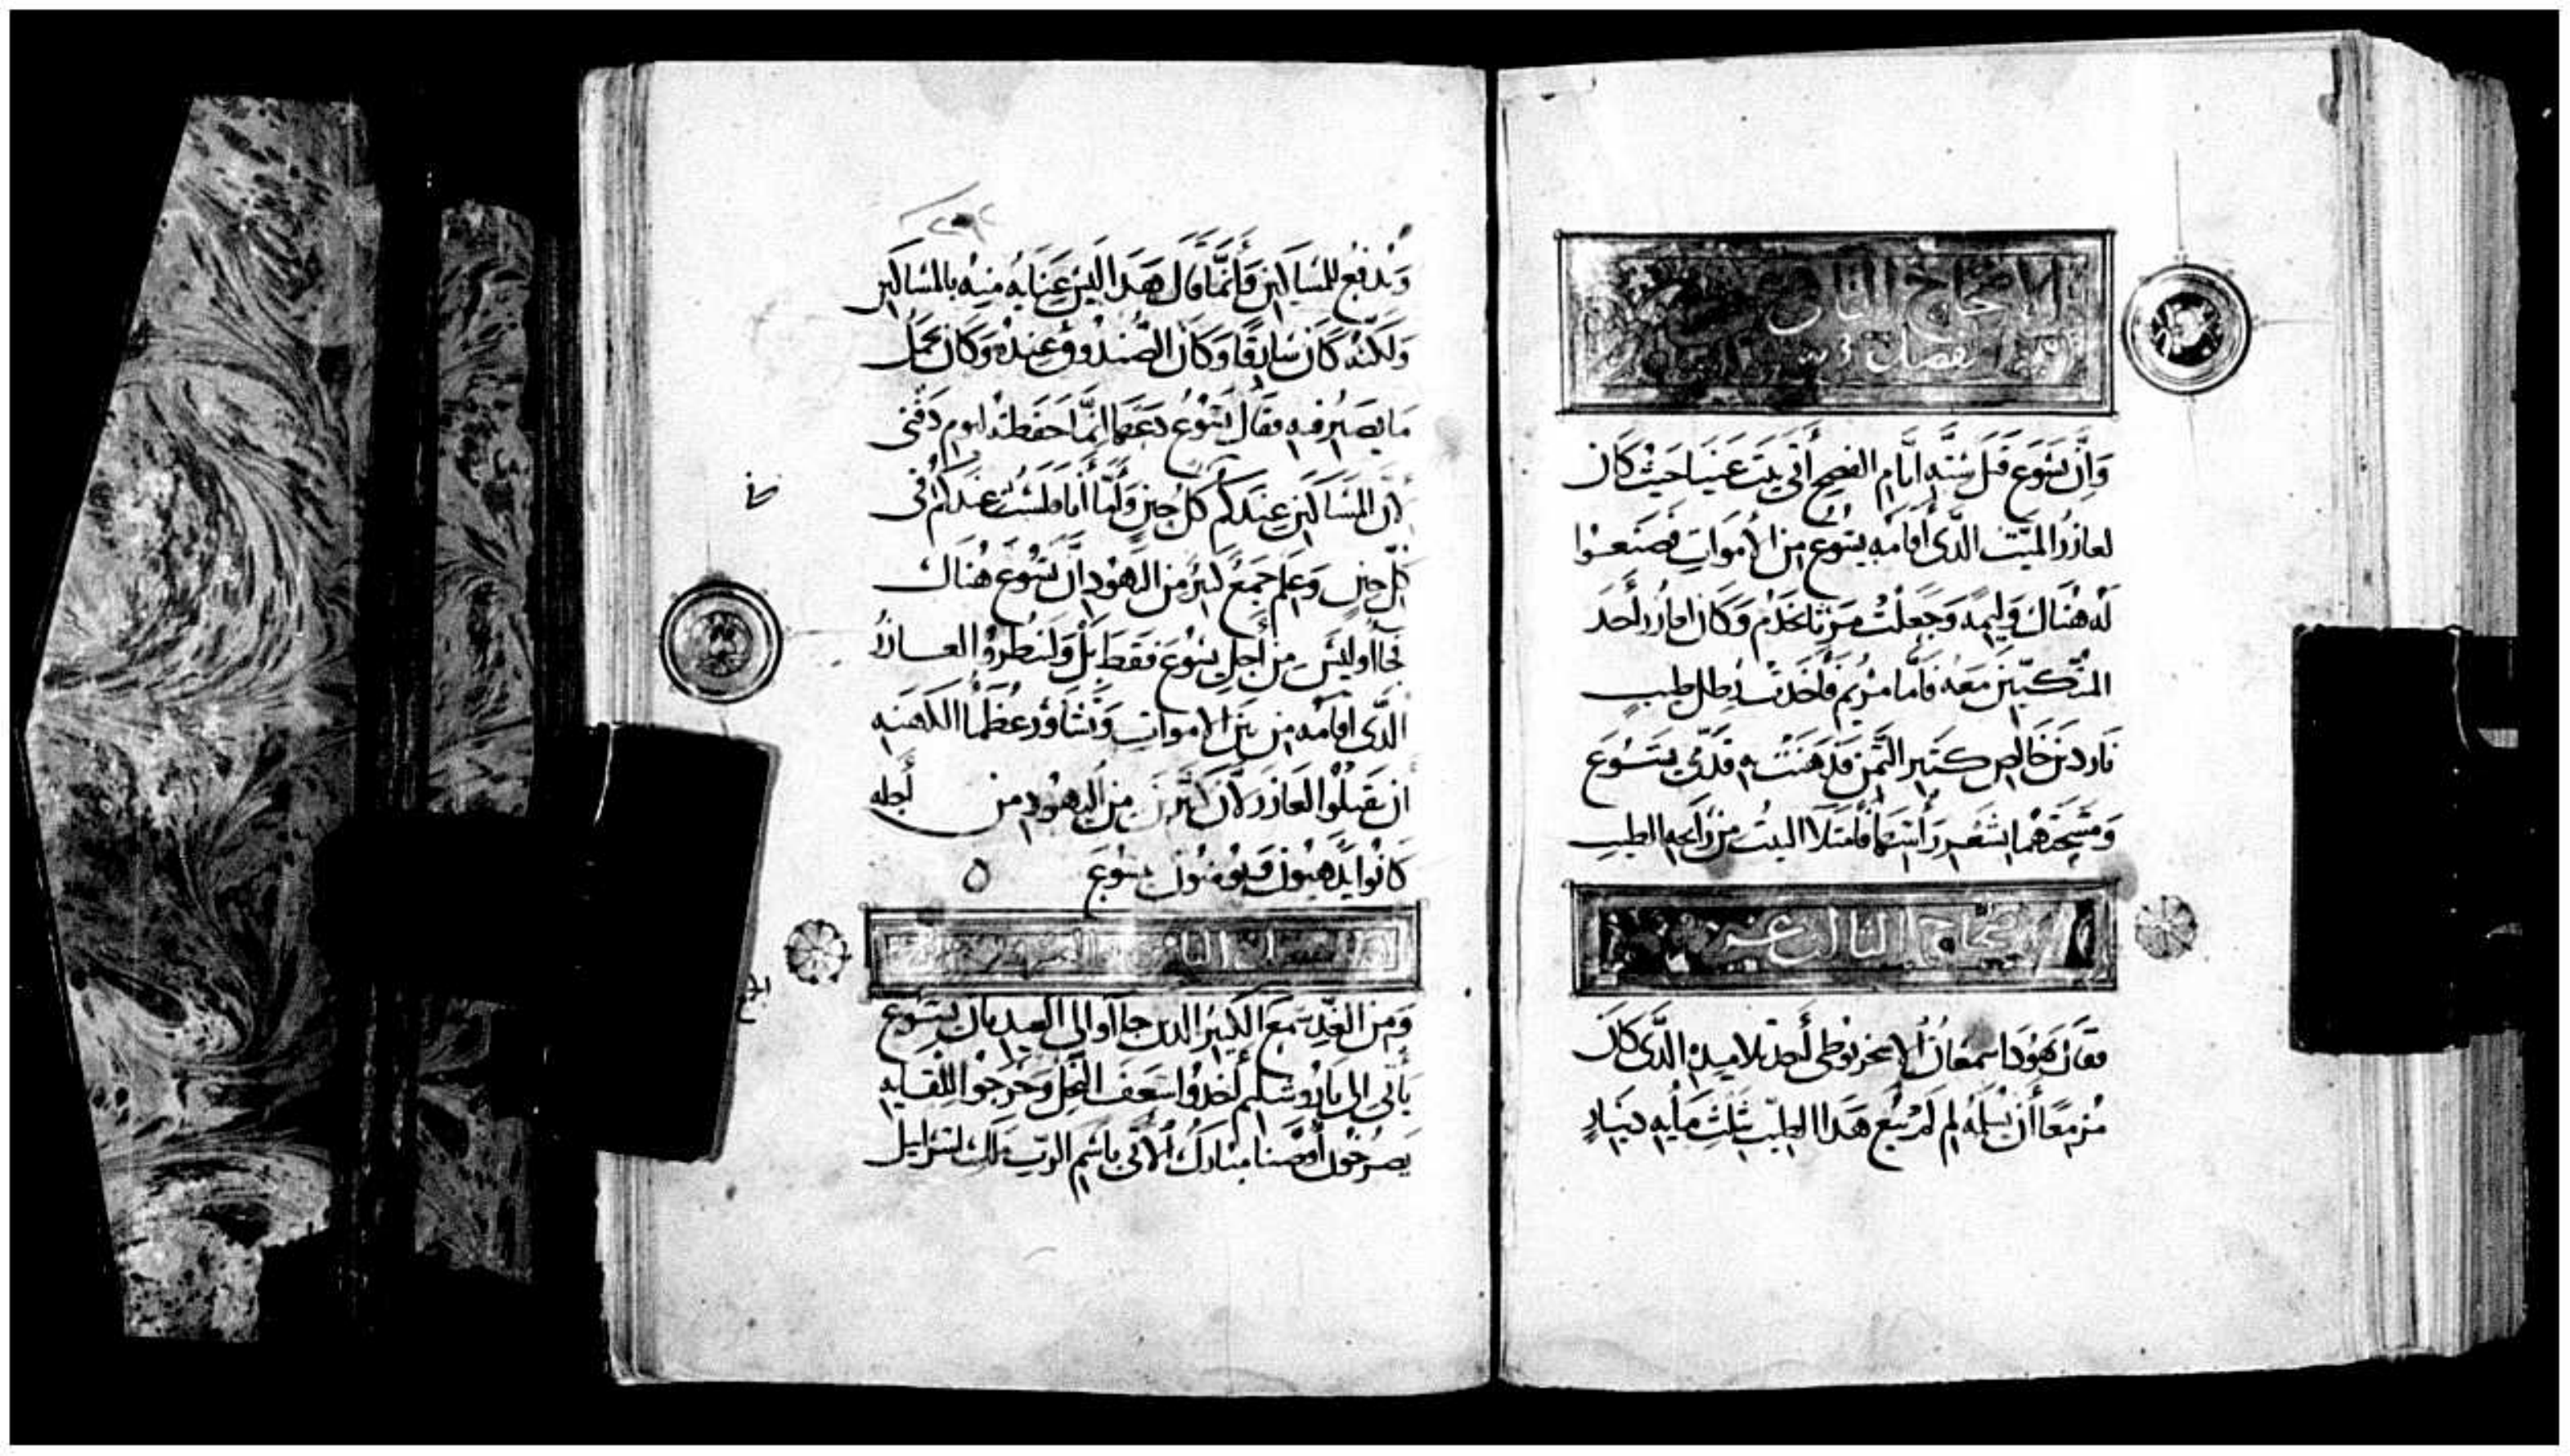 الاصحاح الثانى
فصل
وَإِنَّ يَسُوعَ قَبْلَ سِتَّةِ أَيَّامِ الفصح أَتَى بَيْتَ عَنْيَا حَيْثُ كَانَ
لعازرُ الميّت الَّذى أَقَامَه يَسُوع مِن الأموَاتِ فَصَنَعُوا
لَهُ هُنَاكَ وَلِيمَه وَجَعَلَتْ مَرْثَا تَخْدُم وَكَان لعازر أَحَد
المتّكيين مَعَهُ فَأَمَّا مَرْيَم فَأَخَذَتْ رِطل طِيبٍ
نَارْدِين خَالِص كثير الثَّمَن فَدَهَنَتْ بِهِ قَدَمَى يَسُوع
وَمَسَحَتْهُمَا بِشَعْرِ رَأْسِهَا فَامْتَلَا البيتُ مِن رَايحه الطيب
الاصحاح الثالث عشر
فقَال يَهُودَا سمعَان الاسخريوطى أَحد تلاميذه الَّذى كَان
مُزْمِعًا أَنْ يُسْلِمَهُ لِمَ لَمْ يُبَع هَذَا الطِّيب بِثَلْثَ مِأيه دينَارٍ
وَيُدْفَع للمسَاكين وَإِنَّمَا قَال هَذَا لَيْسَ عِنَايه مِنهُ بالمسَاكين
وَلَكِنَّهُ كَانَ سَارِقًا وَكَان الصُّنْدُوق عِنْدَهُ وَكَان يحمل
مَا يَصِيرُ فيه فقَال يَسُوعُ دَعهَا إِنَّمَا حَفِظَتْهُ ليوم دَفْنِى
لأَن المسَاكين عِنْدَكُم كل حِين وَأَمَّا أَنَا فلستُ عِنْدَكُم فى
كُلّ حين وَعَلِم جَمْعٌ كَثيرٌ مِن اليَهُودِ أَنَّ يَسُوعَ هُنَاك
فجَاأوا ليسَ مِن أَجل يَسُوعَ فَقَط بَلْ وَليَنْظُرُوا العَازرُ
الَّذى اقَامَه مِن بَين الامواتِ وَتَشَاوَرَ عُظَمَا الكهنَه
أن يَقتلُوا لعَازر لأَن كثيرين مِن اليهُودِ مِن أَجله
كَانُوا يَذهبُونَ وَيُومنُونَ بيسُوعَ
وَمِنَ الغَدِ جمع الكثيرُ الدين جاأوا الى العيد بان يَسُوع
يَأتى الى يَارُوشَلِيم أَخَذُوا سَعَفَ النَّخْل وَخَرَجُوا للِقَايه
يَصْرُخُون أُوصَنا مُبَارَكٌ الأتى باسْم الرّبّ مَلك اسْرَاييل